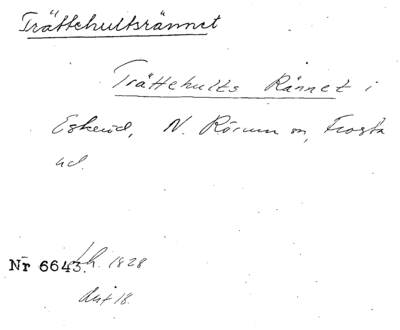 Trättehultsrännet
Trättehults Rännet i
Eskeröd, N. Rörum sn, Frosta
hd.
Nr 6643. Lh. 1828
akt 18.